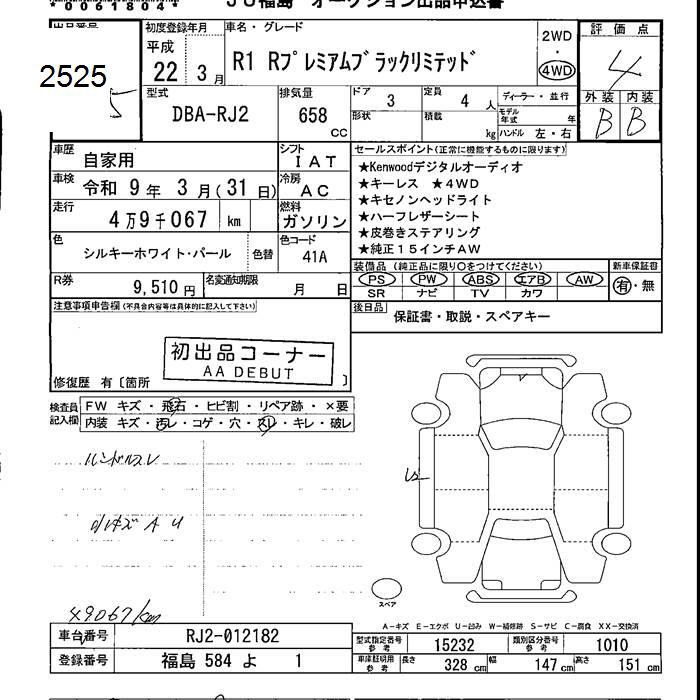 *0061804*
JU福島 オークション出品申込書
出品番号
2525
5
初度登録年月
平成
22 3月
車名・グレード
R1 Rプレミアムブラックリミテッド
2WD
・
4WD
評価点
4
外装 内装
B B
型式
DBA-RJ2
排気量
658
cc
ドア
3
定員
4 人
形状
積載
kg
ディーラー・並行
モデル年式 年
ハンドル 左・右
車歴
自家用
シフト
IAT
車検
令和 9年 3月(31日)
冷房
AC
走行
4万9千067 km
燃料
ガソリン
色
シルキーホワイト・パール
色替
色コード
41A
R券
9,510円
名変通知期限
月 日
セールスポイント(正常に機能するものに限ります)
★Kenwoodデジタルオーディオ
★キーレス ★4WD
★キセノンヘッドライト
★ハーフレザーシート
★皮巻きステアリング
★純正15インチAW
装備品(純正品に限り○をつけてください)
PS PW ABS エアB AW
SR ナビ TV カワ
新車保証書
有・無
後日品
保証書・取説・スペアキー
注意事項申告欄(不具合内容等は具体的に記入して下さい)
初出品コーナー
AA DEBUT
修復歴 有〔箇所 〕
検査員記入欄
FW キズ・飛石・ヒビ割・リペア跡・×要
内装 キズ・汚レ・コゲ・穴・スレ・キレ・破レ
ハンドルスレ
小キズ A U
49067km
スペア
A-キズ E-エクボ U-凹み W-補修跡 S-サビ C-腐食 XX-交換済
車台番号
RJ2-012182
登録番号
福島 584 よ 1
型式指定番号 参考
15232
類別区分番号 参考
1010
車庫証明用 参考
長さ 328 cm 幅 147 cm 高さ 151 cm